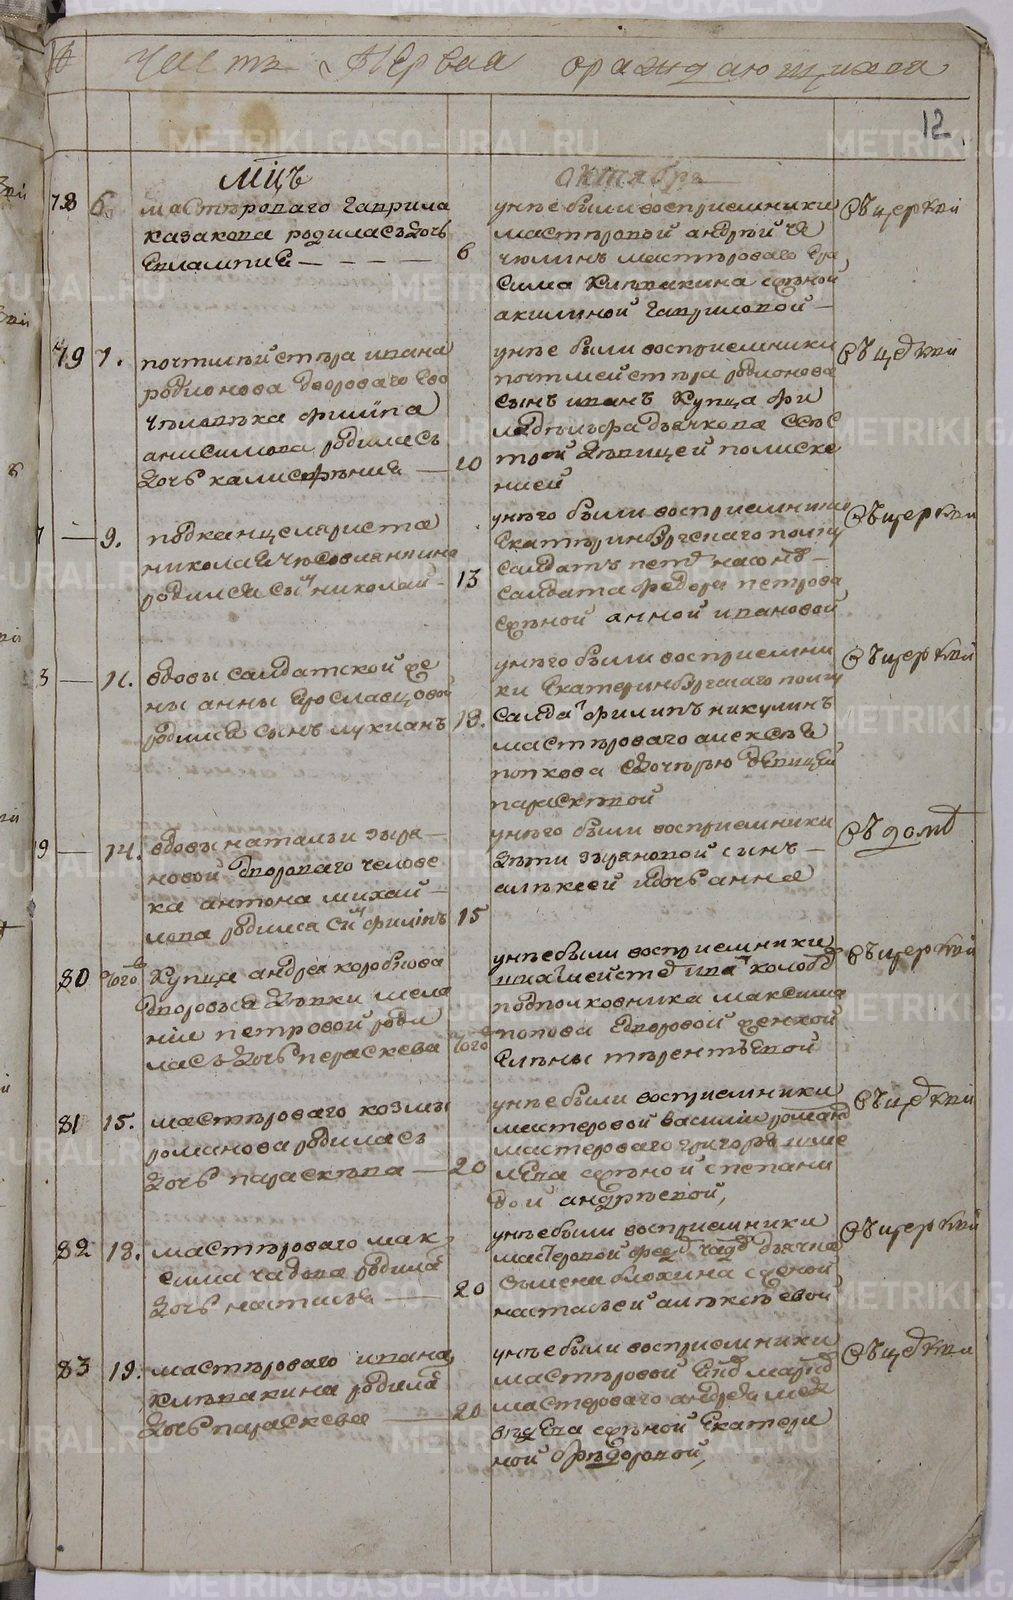 Часть Первая ораждающихся
12
мцъ октября
78 6. мастѣроваго гаврила
казакова родиласъ дочь
евлампия 6
унѣе были восприемники
мастѣровый андрѣй
мастѣроваго
сима клѣпакина зженой
акилиной гавриловой
въ церкви
79 7. почтмейстѣра ивана
родионова двороваго ево
чѣловѣка филипа
анисимова родиласъ
дочь калисфѣния 20
унѣе были восприемники
почтмейстѣра родионова
сынъ иванъ купца фи
ладѣльфа дьячкова ссѣс
трой дѣвицей
въ церкви
9. подканцеляриста
николая
родился сынъ николай 13
унѣго были восприемники
екатѣринбургскаго полку
салдатъ
салдата федора петрова
зженой анной ивановой
въ церкви
11. вдовы салдатской же
ны анны ярославцовой
родился сынъ лукианъ 13.
унѣго были восприемни
ки екатеринбургскаго полку
салдатъ филипъ никулинъ
мастѣроваго алексѣя
попкова здочѣрью девицей
параскѣвой
въ церкви
14. вдовы натальи зыря
новой двороваго челове
ка антона михай
лова родился сынъ филипъ 15
унѣго были восприемники
дѣти зыряновой сынъ
алѣксей идочь анна
въ доме
80 того купца андрея коробкова
дворовыя дѣвки мела
нии петровой роди
лась дочь параскева того
унѣе были восприемники
подполковника максима
попова дворовой женкой
елѣны тѣрентьевой
въ церкви
81 15. мастѣроваго козмы
романова родиласъ
дочь параскѣва 20
унѣе были восприемники
мастеровой василий роман
мастероваго григорья шме
лева зженой степани
дой андрѣевой,
въ церкви
82 18. мастѣроваго мак
сима чадова родила
дочь настасья 20
унѣе были восприемники
мастеровой дьячка
семена блохина зженой
настасьей алѣксѣевой
въ церкви
83 19. мастѣроваго ивана
клѣпакина родила
дочь параскева 20
унѣе были восприемники
мастѣровой
мастероваго андрея мед
вѣдева зженой екатери
ной фѣдоровой,
въ церкви
METRIKI.GASO-URAL.RU